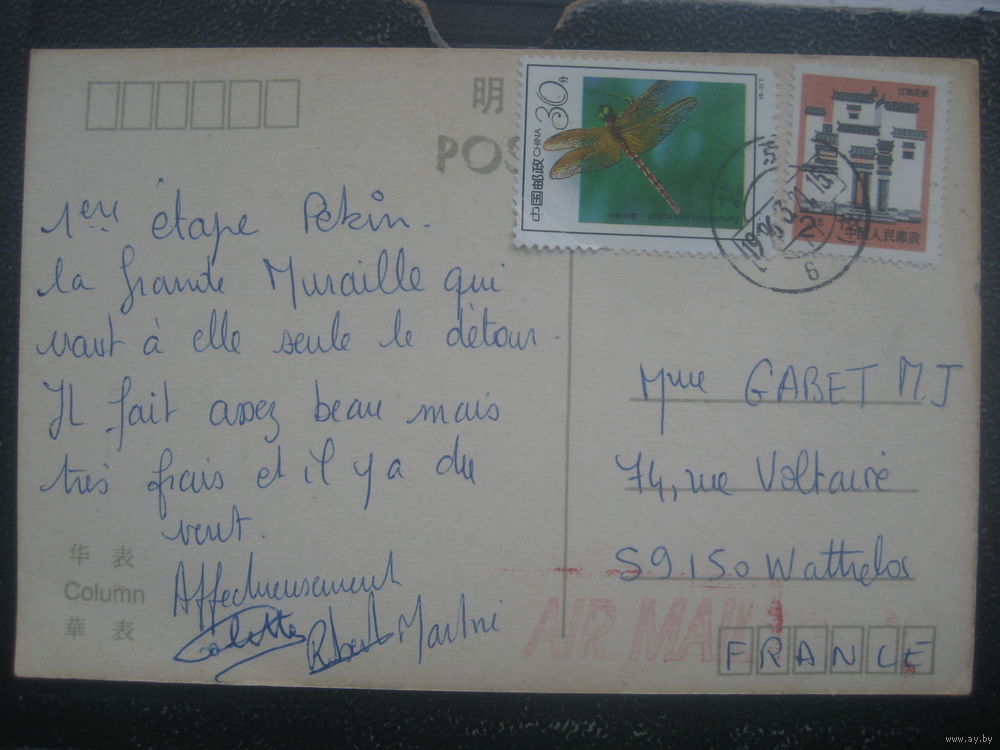 明
POS
30分
CHINA
中国邮政
江西民居
中国人民邮政
1996.3.21.13
6
1ère étape Pékin.
la Grande Muraille qui
vaut à elle seule le détour.
Il fait assez beau mais
très frais et il y a du
vent.
Affectueusement
Colette Robert Martine
华表
Column
華表
Mme GABET M.J
74, rue Voltaire
59150 Wattrelos
AIR MAIL
FRANCE
www.ay.by